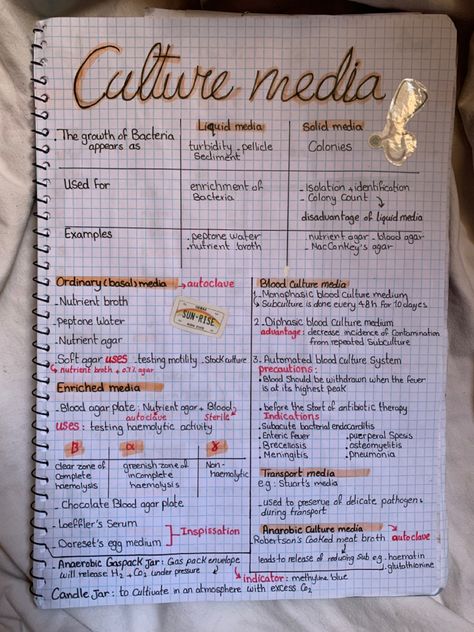 Culture media
Liquid media
Solid media
. The growth of Bacteria
appears as
turbidity . pellicle
Sediment
Colonies
Used for
enrichment of
Bacteria
_ isolation + identification
_ Colony Count
disadvantage of liquid media
Examples
. peptone water
. nutrient broth
nutrient agar _ blood agar
_ MacConkey's agar
Ordinary (basal) media → autoclave
_ Nutrient broth
. peptone Water
. Nutrient agar
. Soft agar uses . testing motility . Stock culture
↳ nutrient broth + 0.7% agar
SUN-RISE
Enriched media
_ Blood agar plate : Nutrient agar + Blood
autoclave Sterile
uses : testing haemolytic activity
β α γ
clear zone of
Complete
haemolysis
greenish zone of
incomplete
haemolysis
Non-
haemolytic
_ Chocolate Blood agar plate
_ Loeffler's Serum
_ Doreset's egg medium
Inspissation
Blood Culture media
1. Monophasic blood Culture medium
↳ Subculture is done every 48h for 10 dayes
2. Diphasic blood Culture medium
advantage : decrease incidence of Contamination
from repeated Subculture
3. Automated blood Culture System
precautions :
. Blood Should be withdrawn when the fever
is at its highest peak
. before the Start of antibiotic therapy
Indications
. Subacute bacterial endocarditis
. Enteric fever
. Brecellosis
. Meningitis
. puerperal Spesis
. osteomyelitis
. pneumonia
Transport media
e.g : Stuart's media
. used to preserve of delicate pathogens
during transport
Anarobic Culture media → autoclave
Robertson's Cooked meat broth
leads to release of reducing sub e.g . haematin
. glutathionine
. Anaerobic Gaspack Jar : Gas pack envelope
will release H2 + Co2 under pressure
indicator : methyline blue
Candle Jar : to Cultivate in an atmosphere with excess Co2